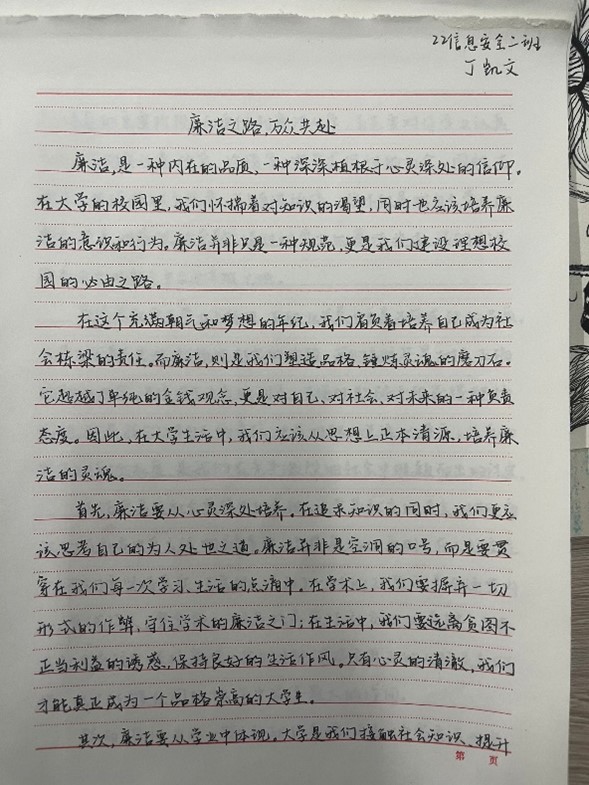 22信息安全二班
丁凯文
廉洁之路,万众共赴
廉洁,是一种内在的品质,一种深深植根于心灵深处的信仰。
在大学的校园里,我们怀揣着对知识的渴望,同时也应该培养廉
洁的意识和行为。廉洁并非只是一种规范,更是我们建设理想校
园的必由之路。
在这个充满朝气和梦想的年纪,我们肩负着培养自己成为社
会栋梁的责任。而廉洁,则是我们塑造品格、锤炼灵魂的磨刀石。
它超越了单纯的金钱观念,更是对自己、对社会、对未来的一种负责
态度。因此,在大学生活中,我们应该从思想上正本清源,培养廉
洁的灵魂。
首先,廉洁要从心灵深处培养。在追求知识的同时,我们更应
该思考自己的为人处世之道。廉洁并非是空洞的口号,而是要贯
穿在我们每一次学习、生活的点滴中。在学术上,我们要摒弃一切
形式的作弊,守住学术的廉洁之门;在生活中,我们要远离贪图不
正当利益的诱惑,保持良好的生活作风。只有心灵的清澈,我们
才能真正成为一个品格崇高的大学生。
其次,廉洁要从学业中体现。大学是我们接触社会知识、提升
第 页